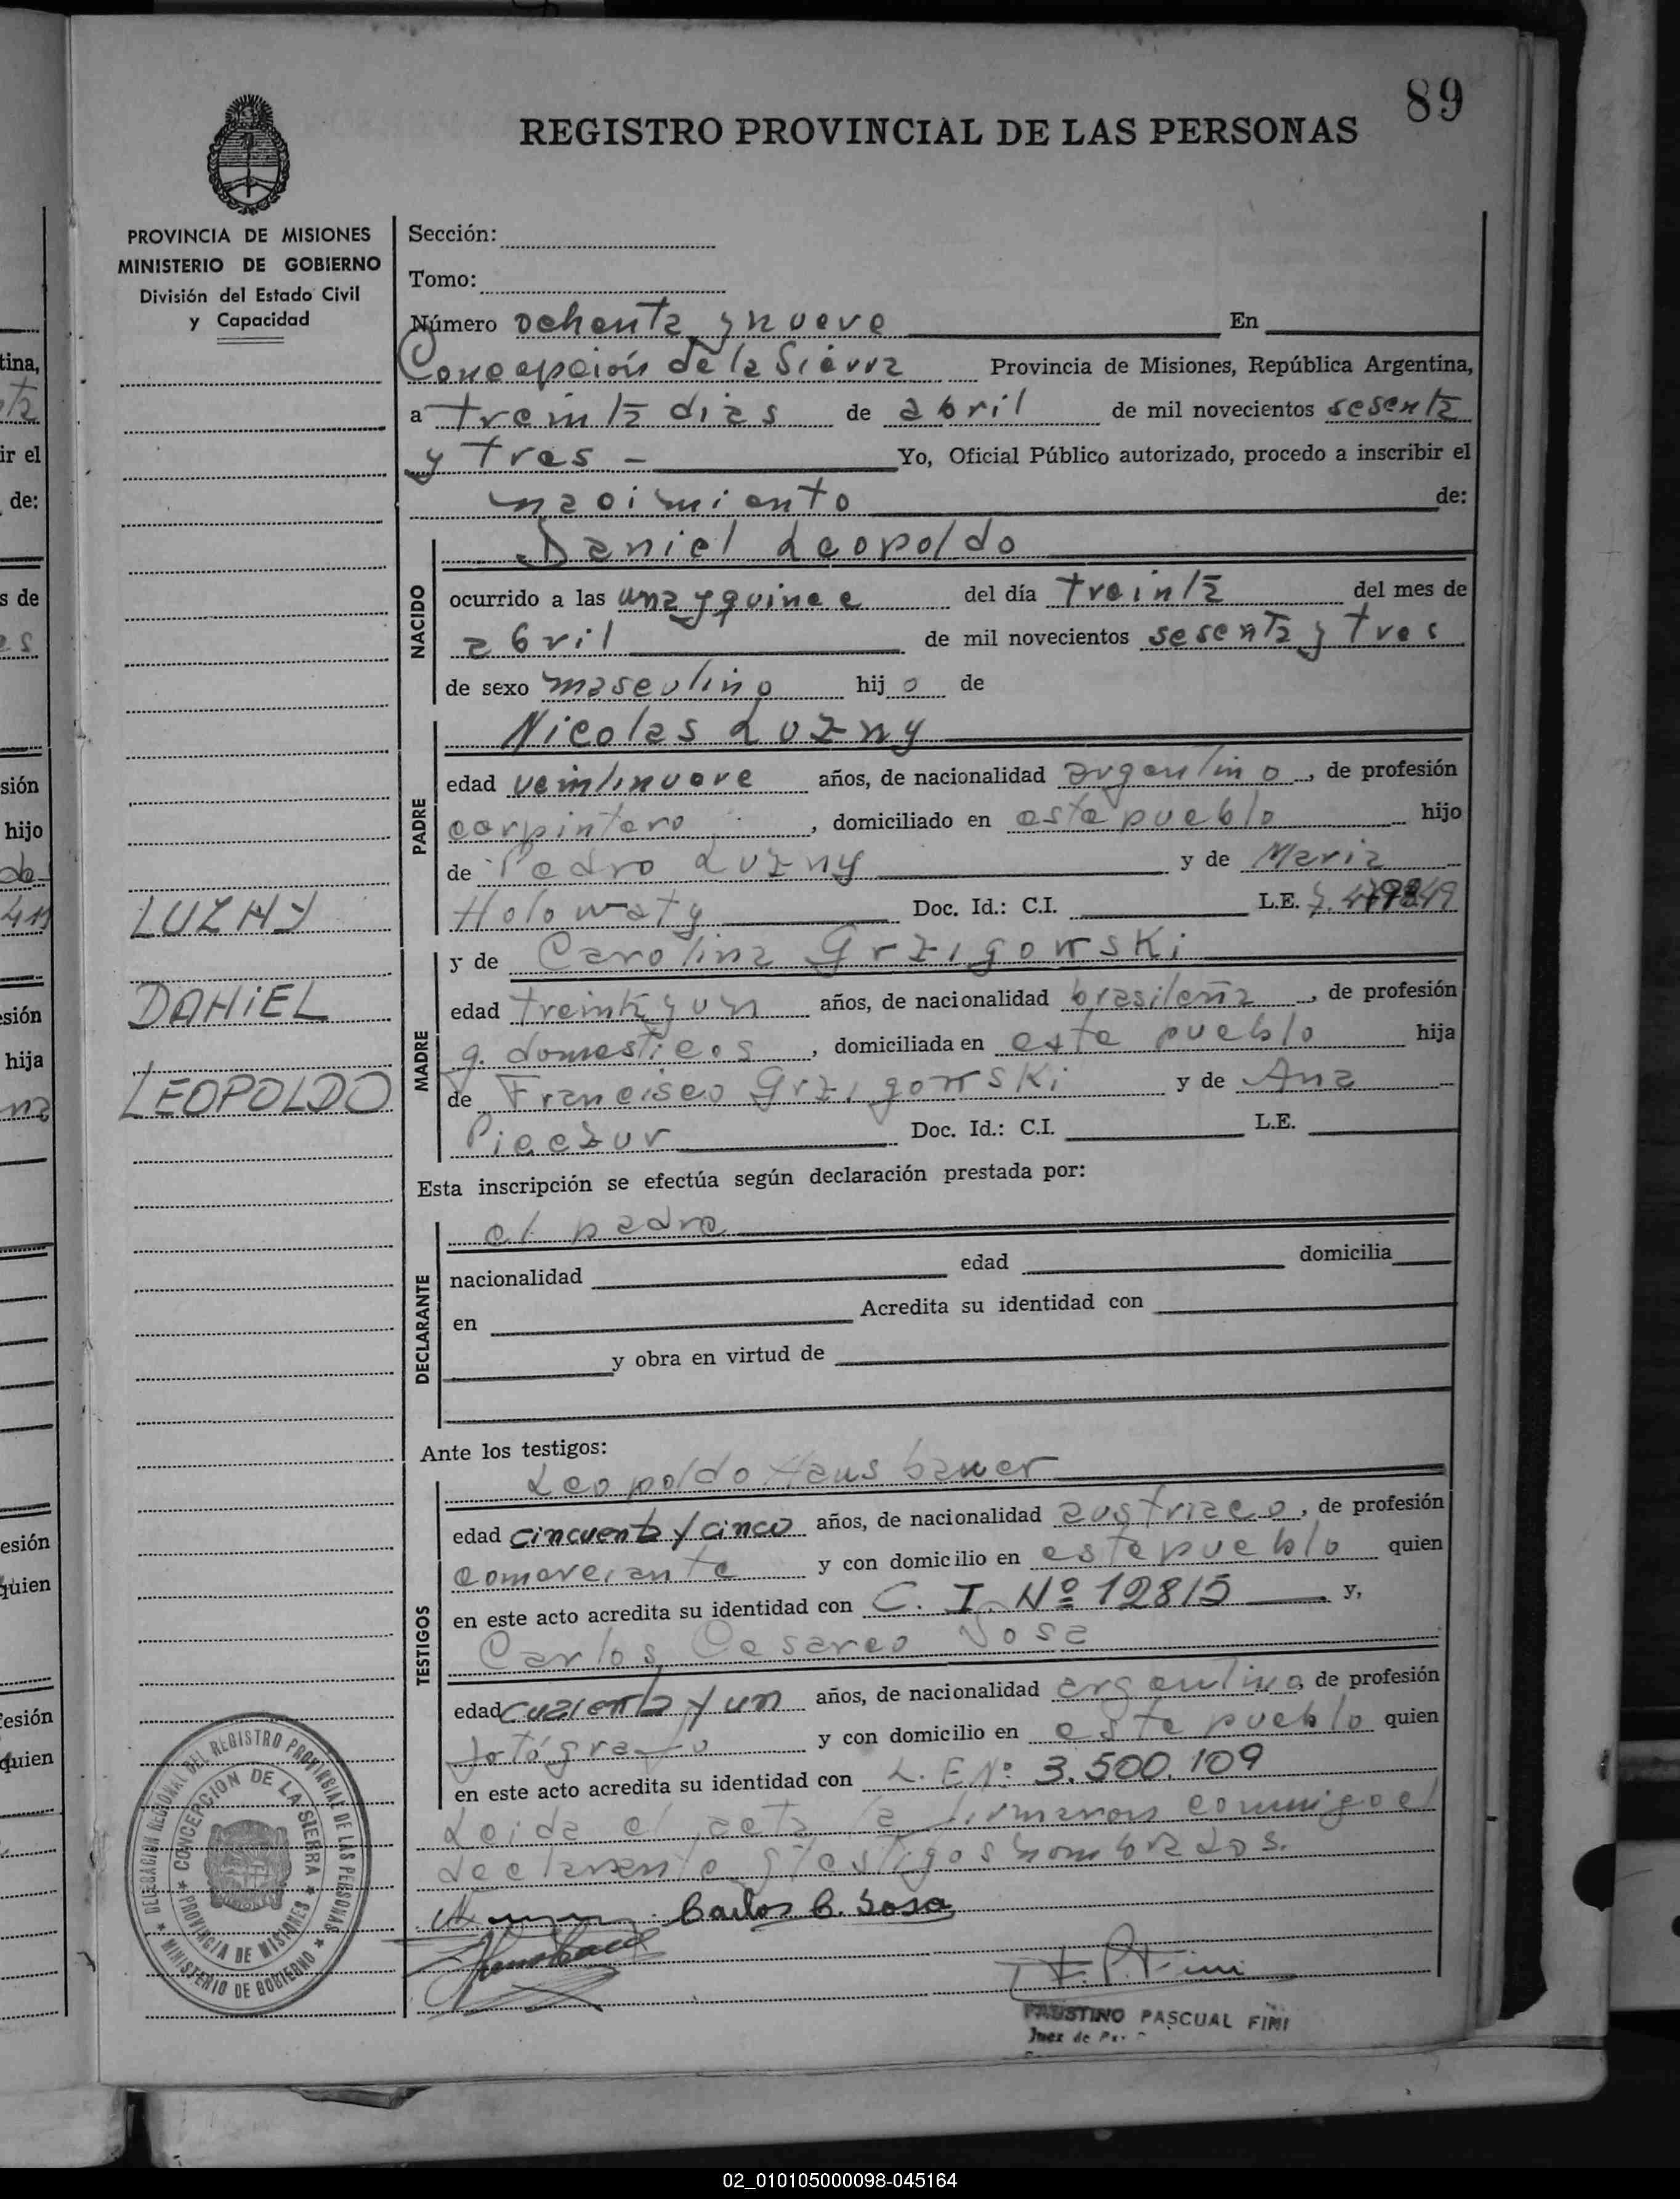 89
REGISTRO PROVINCIAL DE LAS PERSONAS
PROVINCIA DE MISIONES
MINISTERIO DE GOBIERNO
División del Estado Civil
y Capacidad
Sección:
Tomo:
Número ochenta y nueve En
Concepción de la Sierra Provincia de Misiones, República Argentina,
a treinta dias de abril de mil novecientos sesenta
y tres - Yo, Oficial Público autorizado, procedo a inscribir el
nacimiento de:
NACIDO
Daniel Leopoldo
ocurrido a las una y quince del día treinta del mes de
abril de mil novecientos sesenta y tres
de sexo masculino hijo de
PADRE
Nicolas Luzny
edad veintinueve años, de nacionalidad argentino, de profesión
carpintero, domiciliado en este pueblo hijo
de Pedro Luzny y de Maria
Holowaty Doc. Id.: C.I. L.E.
MADRE
y de Carolina Grzigowski
edad treinta y un años, de nacionalidad brasileña, de profesión
q. domesticos, domiciliada en este pueblo hija
de Francisco Grzigowski y de Ana
Pieczur Doc. Id.: C.I. L.E.
LUZNY
DANIEL
LEOPOLDO
Esta inscripción se efectúa según declaración prestada por:
DECLARANTE
el padre
nacionalidad edad domicilia
en Acredita su identidad con
y obra en virtud de
Ante los testigos:
TESTIGOS
Leopoldo Hausbauer
edad cincuenta y cinco años, de nacionalidad austriaco, de profesión
comerciante y con domicilio en este pueblo quien
en este acto acredita su identidad con C. I. Nº 12815 y,
Carlos Cesareo Sosa
edad cuarenta y un años, de nacionalidad argentino, de profesión
fotógrafo y con domicilio en este pueblo quien
en este acto acredita su identidad con L. E. Nº 3.500.109
Leida el acta la firmaron conmigo el
declarante y testigos nombrados.
Carlos C. Sosa
F. P. Fini
FAUSTINO PASCUAL FINI
Juez de
DELEGACION REGIONAL DEL REGISTRO PROVINCIAL DE LAS PERSONAS
MINISTERIO DE GOBIERNO
CONCEPCION DE LA SIERRA
PROVINCIA DE MISIONES
02_010105000098-045164